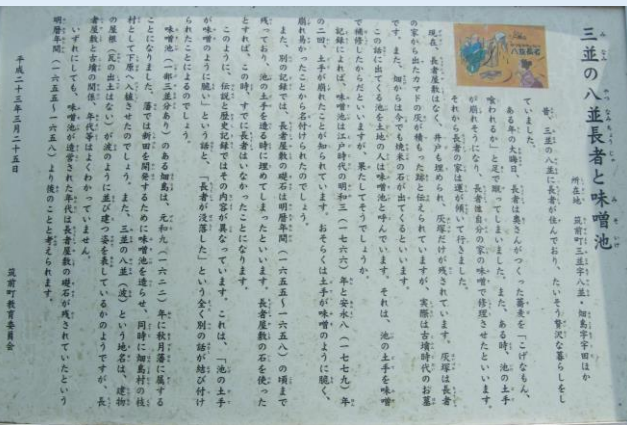 三並の八並長者と味噌池
所在地 筑前町三並字八並、畑島字宇田ほか
昔、三並の八並に長者が住んでおり、たいそう贅沢な暮らしをし
ていました。
ある年の大晦日、長者は奥さんがつくった蕎麦を「こげなもん、
喰われるか」と足で蹴ってしまいました。また、ある時、池の土手
が崩れそうになり、長者は自分の家の味噌で修理させたといいます。
それから長者の家は運が傾いて行きました。
現在、長者屋敷はなく、井戸も埋められ、灰塚だけが残されています。灰塚は長者
の家から出たカマドの灰が積もった跡と伝えられていますが、実際は古墳時代のお墓
です。また、畑からは今でも焼米の石が出てくるといいます。
この話に出てくる池を土地の人は味噌池と呼んでいます。それは、池の土手を味噌
で補修したからだといいますが、果たしてそうでしょうか。
記録によれば、味噌池は江戸時代の明和三(一七六六)年と安永八(一七七九)年
の二回、土手が崩れたことが知られています。おそらくは土手が味噌のように脆く、
崩れ易かったことから名付けられたのでしょう。
また、別の記録では、長者屋敷の礎石は明暦年間(一六五五~一六五八)の頃まで
残っており、池の土手を造る時に埋めてしまったといいます。長者屋敷の石を使った
とすれば、この時、すでに長者はいなかったことになります。
このように、伝説と歴史記録ではその内容が異なっています。これは、「池の土手
が味噌のように脆い」という話と、「長者が没落した」という全く別の話が結び付け
られたことによるのでしょう。
味噌池(一部三並分あり)のある畑島は、元和九(一六二三)年に秋月藩に属する
ことになりました。藩では新田を開発するために味噌池を造らせ、同時に畑島村の枝
村として下原へ入植させたのでしょう。また、三並の八並(波)という地名は、建物
の屋根(瓦の出土はない)が波のように並び建つ姿を表しているかのようですが、長
者屋敷と古墳の関係、年代等はよくわかっていません。
いずれにしても、味噌池が造営された年代は長者屋敷の礎石が残されていたという
明暦年間(一六五五~一六五八)より後のことと考えられます。
平成二十三年三月二十五日
筑前町教育委員会